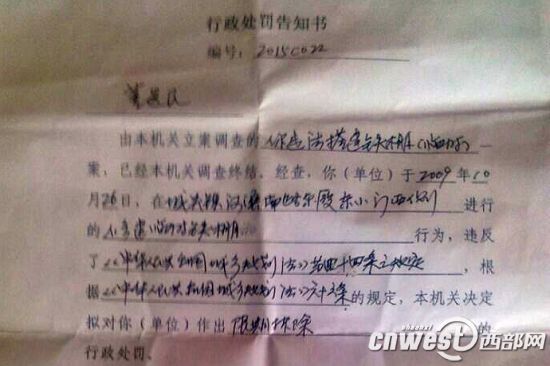 行政处罚告知书
编号：2015C022
民
由本机关立案调查的 你违法搭建铁棚（临时）一
案，已经本机关调查终结。经查，你（单位）于2009年10
月26日，在城关镇 南 东小门西侧 进行
的 临时 铁棚 行为，违反
了《中华人民共和国城乡规划法》第四十四条之规定，根
据《中华人民共和国城乡规划法》六十六条的规定，本机关决定
拟对你（单位）作出 限期拆除 的
行政处罚。
shaanxi
cnwest西部网